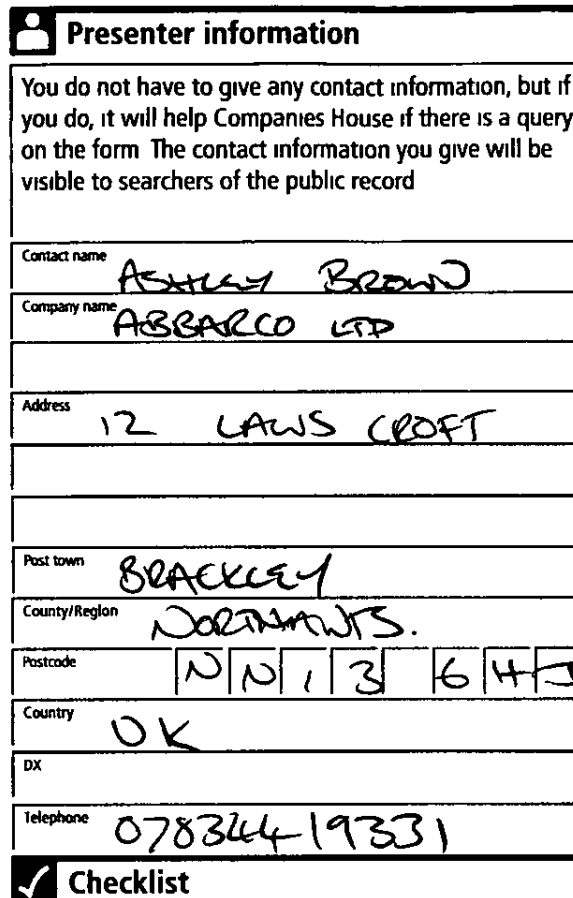 Presenter information
You do not have to give any contact information, but if
you do, it will help Companies House if there is a query
on the form The contact information you give will be
visible to searchers of the public record
Contact name ASHLEY BROWN
Company name ABBARCO LTD
Address 12 LAWS CROFT
Post town BRACKLEY
County/Region NORTHANTS.
Postcode NN13 6HJ
Country UK
DX
Telephone 07834419331
Checklist